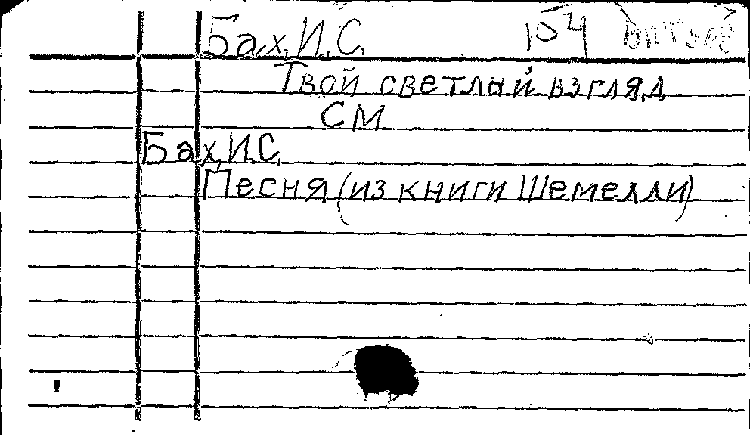 Бах, И.С. 104
Твой светлый взгляд
СМ
Бах, И.С.
Песня (из книги Шемелли)